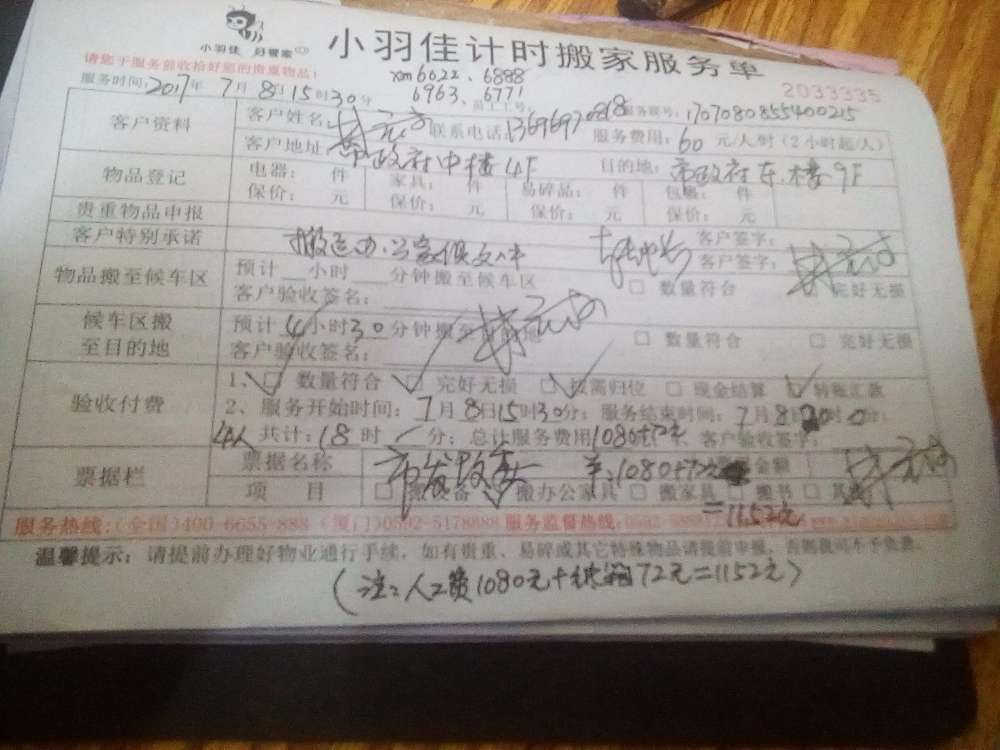 小羽佳 好管家
小羽佳计时搬家服务单
请您于服务前收拾好您的贵重物品！
xm6622、6888
2033335
服务时间：2017年7月8日15时30分
6963、6771
员工工号： 服务联号：1707080855400215
客户资料 客户姓名： 联系电话 服务费用：60元/人/时（2小时起/人）
客户地址：市政府中楼4F 目的地：市政府东楼9F
物品登记 电器： 件 家具： 件 易碎品： 件 包裹： 件
保价： 元 保价： 元 保价： 元 保价： 元
贵重物品申报 客户签字：
客户特别承诺 搬运办公家俱文件 客户签字：
物品搬至候车区 预计 小时 分钟搬至候车区 □ 数量符合 □ 完好无损
客户验收签名：
候车区搬至目的地 预计4小时30分钟搬至目的地 □ 数量符合 □ 完好无损
客户验收签名：
验收付费 1、□ 数量符合 □ 完好无损 □ 按需归位 □ 现金结算 □ 转账汇款
2、服务开始时间：7月8日15时30分；服务结束时间：7月8日20时0分；
4人 共计：18时/分；总计服务费用1080+72元 客户验收签字：
票据栏 票据名称 市发改委 ¥：1080+72 金额
项 目 □ 搬设备 □ 搬办公家具 □ 搬家具 □ 搬书 □ 其他
=1152元
服务热线：（全国）400-6655-888（厦门）0592-5178888 服务监督热线：
温馨提示：请提前办理好物业通行手续，如有贵重、易碎或其它特殊物品请提前申报，否则我司不予负责。
（注：人工费1080元+纸箱72元=1152元）